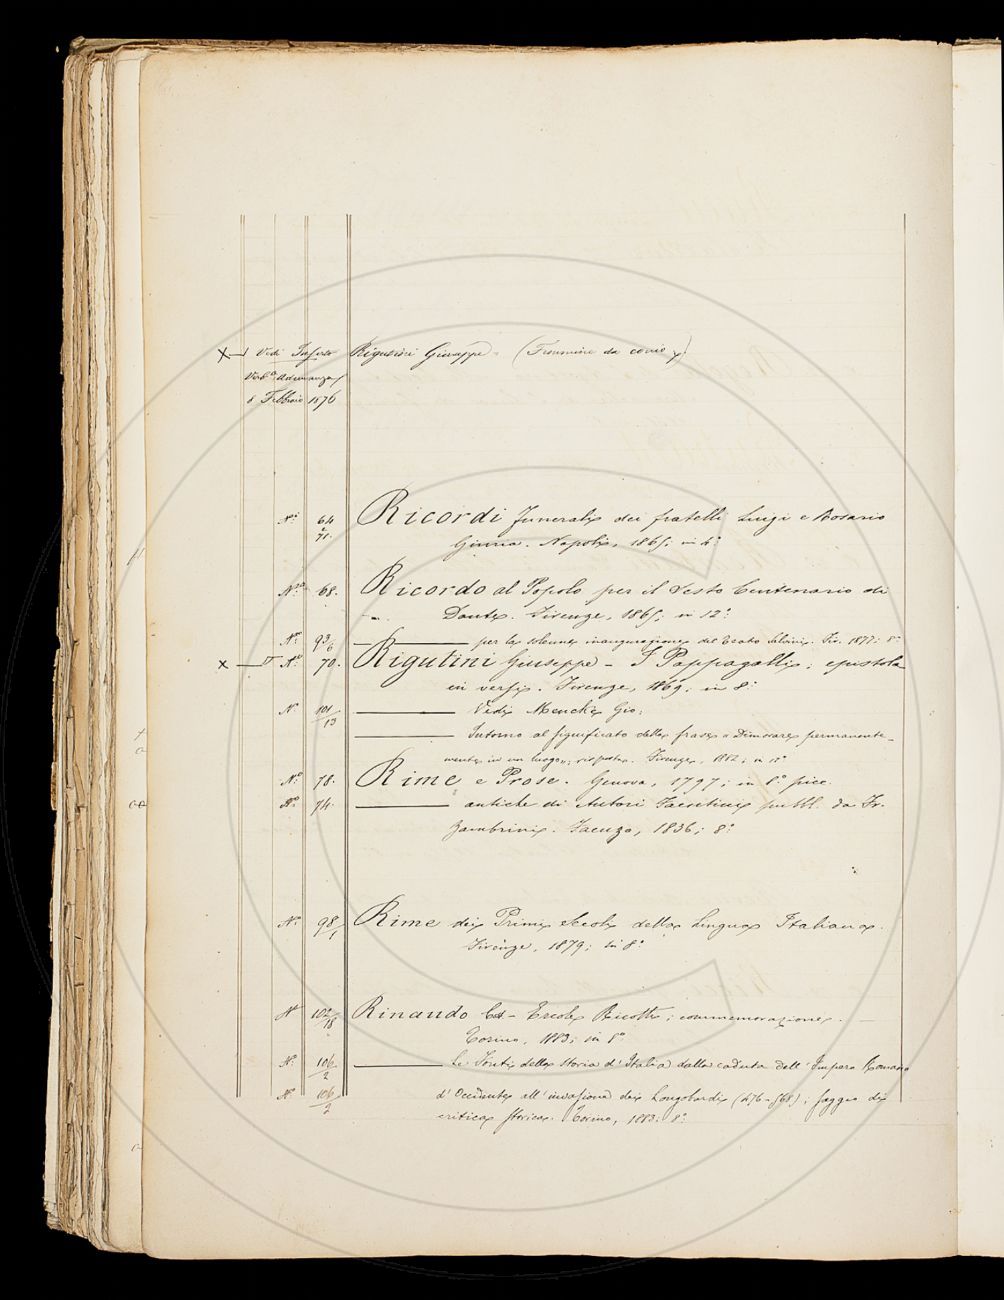 X Vedi Inserto Rigutini Giuseppe. (Trommire da conio)
Verb.º Adunanza
8 Febbraio 1876
N.i 64 Ricordi funerali dei fratelli Luigi e Rosario
71. Giuria. Napoli, 1865, in 4.º
N.º 68. Ricordo al Popolo per il Sesto Centenario di
Dante. Firenze, 1865, in 12.º
N.º 93/6 ——— per la solenne inaugurazione del Salvini. Fir. 1877; 8.º
X N.º 70. Rigutini Giuseppe – I Pappagalli; epistola
in versi. Firenze, 1869; in 8.º
N.º 101/13 ——— Vedi Menche Gio:
——— Intorno al significato della frase „Dimorare permanente-
mente in un luogo„; risposta. Firenze, 1882; in 12.º
N.º 78. Rime e Prose. Genova, 1797; in 8.º picc.
N.º 74. ——— antiche di Autori Faentini pubbl. da Fr.
Zambrini. Faenza, 1836; 8.º
N.º 98/1 Rime dei Primi Secoli della Lingua Italiana.
Firenze, 1879; in 8.º
N.º 102/18 Rinaudo C. – Ercole Ricotti; commemorazione. —
Torino, 1883; in 8.º
N.º 106/2 ——— Le Fonti della Storia d'Italia dalla caduta dell'Impero Romano
N.º 106/2 d'Occidente all'invasione dei Longobardi (476–568); saggio di
critica storica. Torino, 1883. 8.º